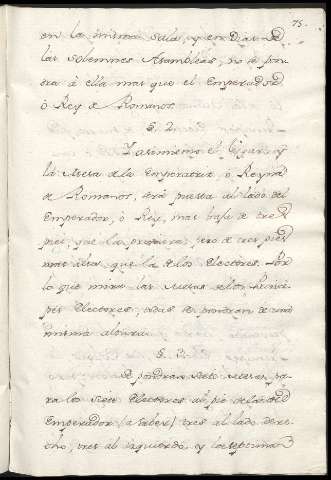 75.
en la misma sala, y en dias de
las solemnes Asambleas, no se pon
era à ella mas que el Emperador
ò Rey de Romanos.
§. 2.
Y asimismo el
la Mesa de la Emperatriz, ò Reyna
de Romanos, será puesta al lado del
Emperador, ò Rey, mas baja de tres
pies, que la primera, pero de tres pies
mas alta que la de los Electores. Por
lo que mira las Mesas de los Princi
pes Electores, todas se pondran de una
misma altura.
§. 3.
Se pondran siete mesas, pa
ra los siete Electores al pie de la del
Emperador (a saber) tres al lado dere
cho, tres al izquierdo, y la septima